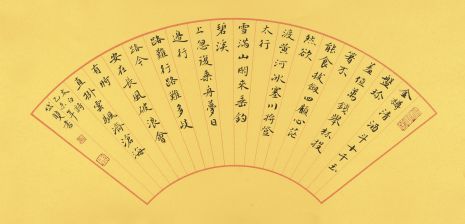 金樽清酒斗十千玉
盤珍
羞值萬錢舉杯投
箸不
能食拔劍四顧心茫
然欲
渡黃河冰塞川將登
太行
雪滿山閑來垂釣
碧溪
上忽復乘舟夢日
邊行
路難行路難多歧
路今
安在長風破浪會
有時
直掛雲帆濟滄海